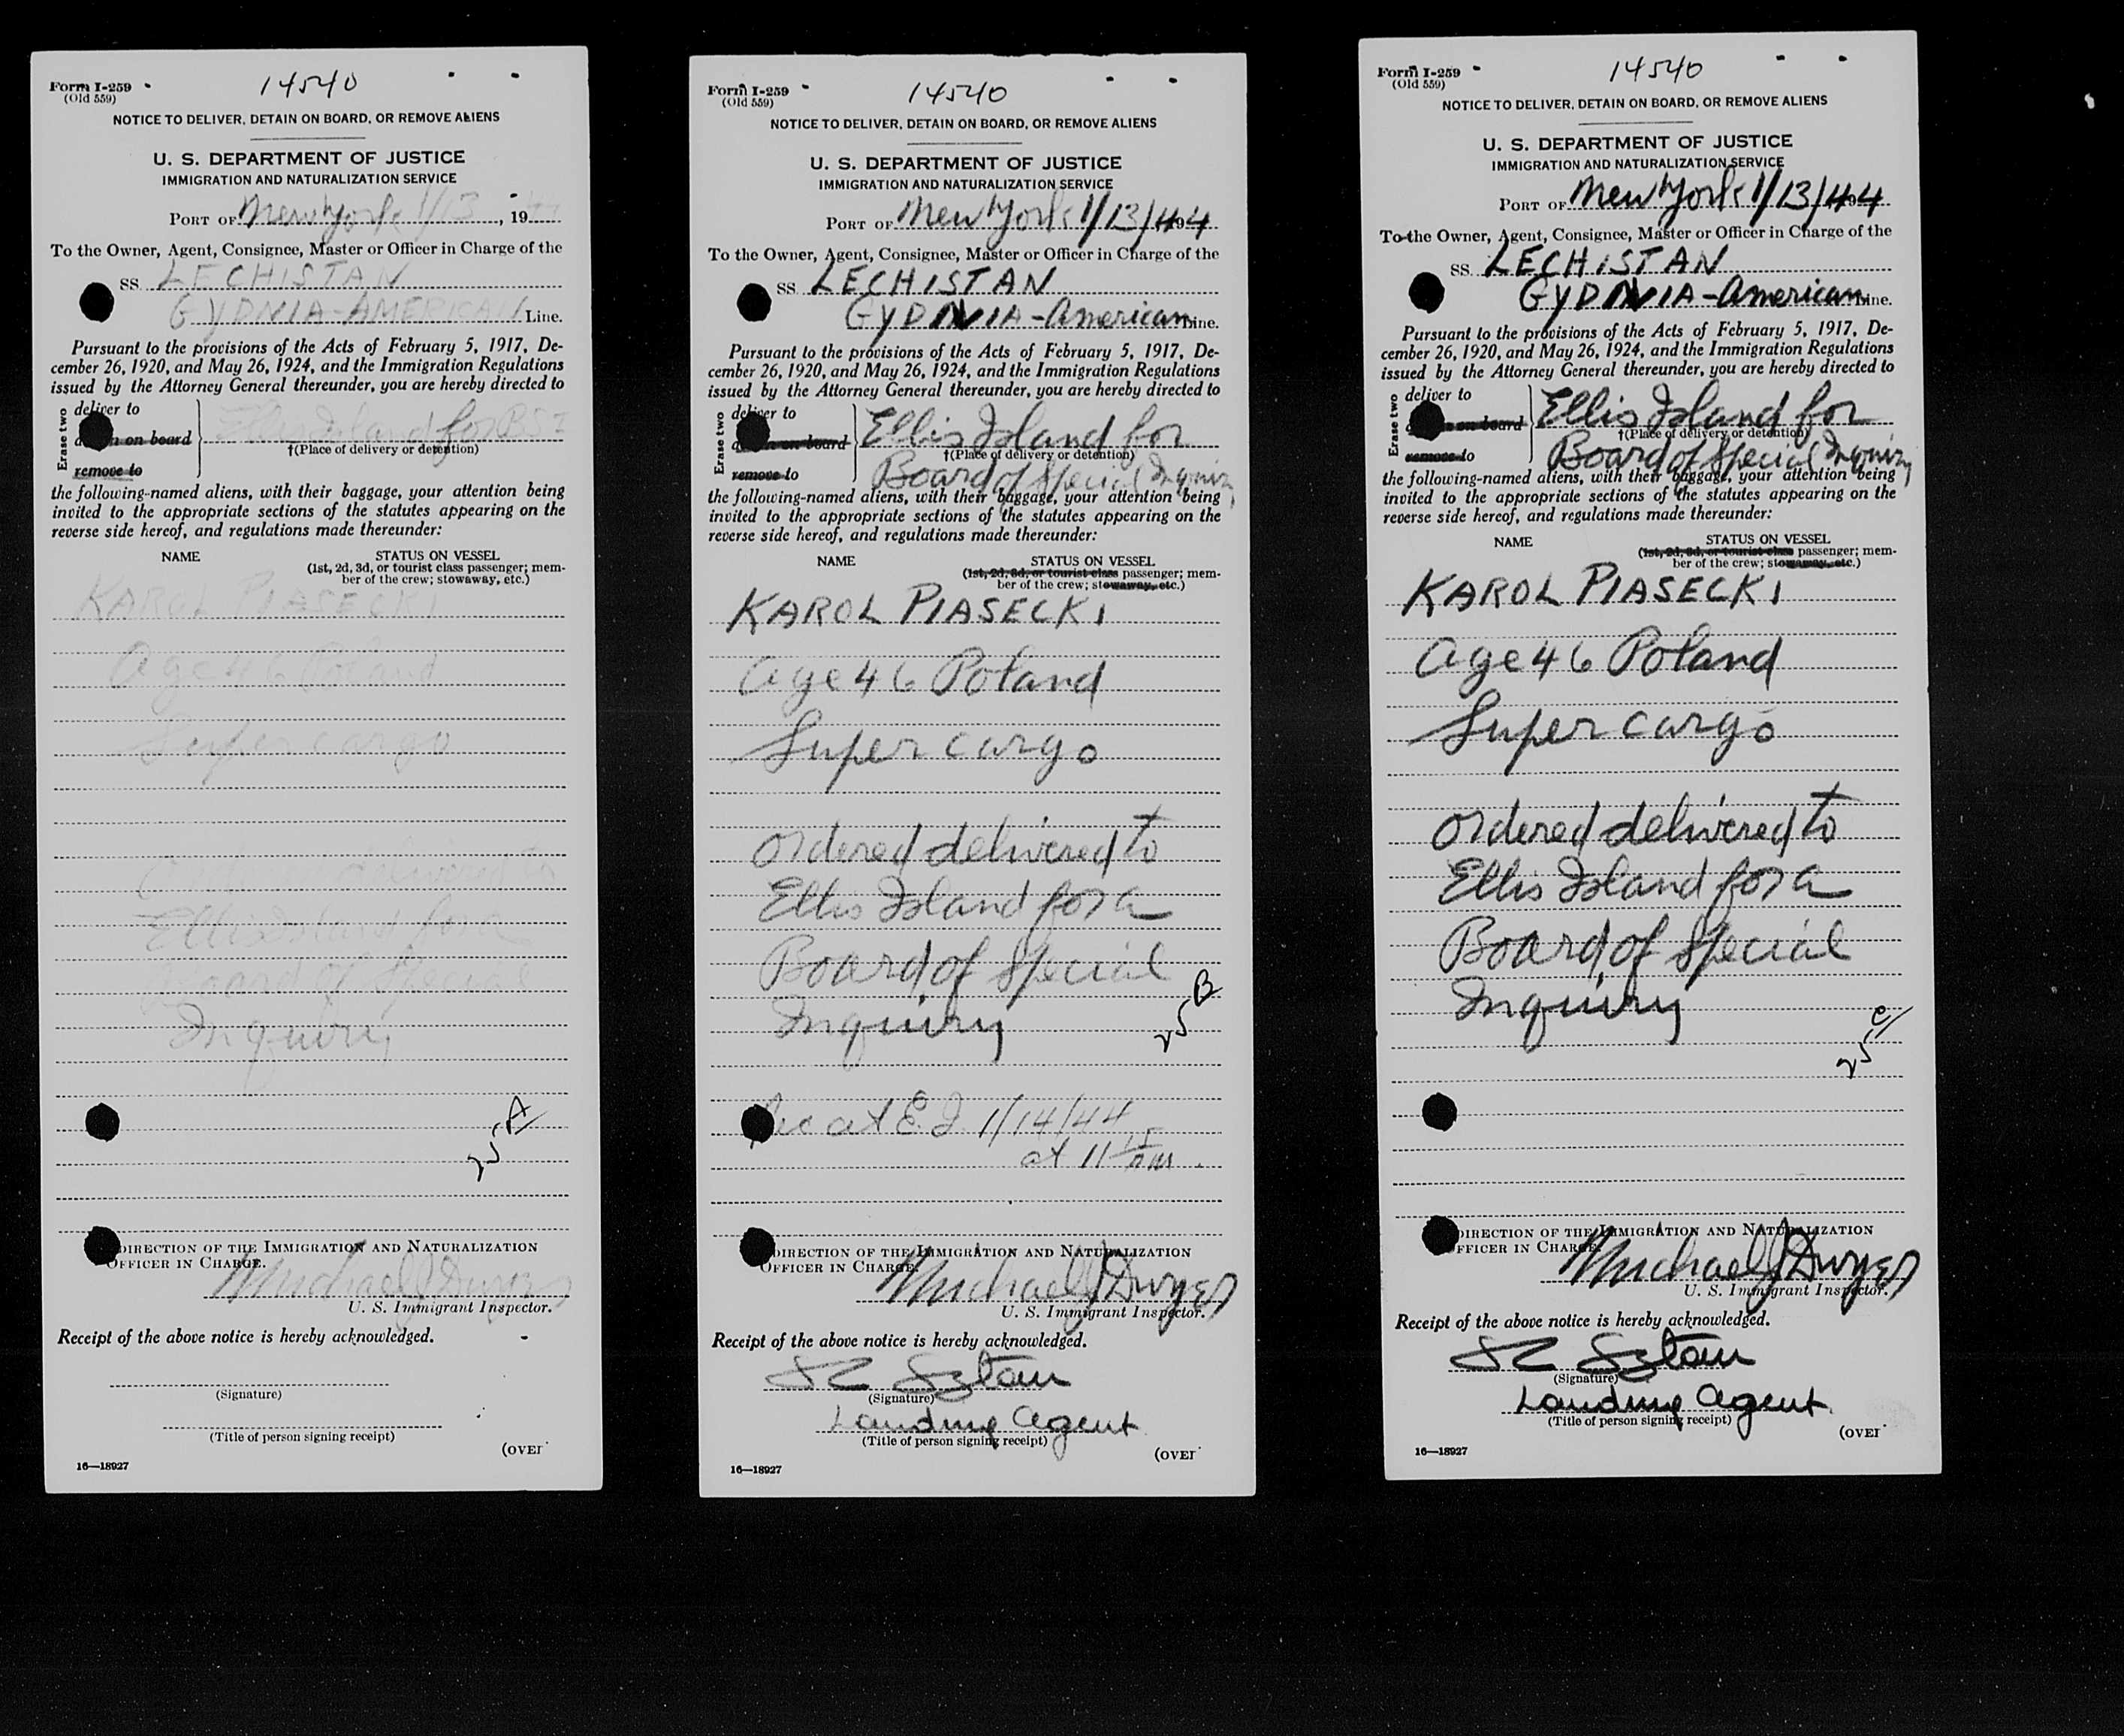 Form I-259
(Old 559)
14540
NOTICE TO DELIVER, DETAIN ON BOARD, OR REMOVE ALIENS
U. S. DEPARTMENT OF JUSTICE
IMMIGRATION AND NATURALIZATION SERVICE
PORT OF New York 1/13, 1944
To the Owner, Agent, Consignee, Master or Officer in Charge of the
SS LECHISTAN
GYDNIA-AMERICAN Line.
Pursuant to the provisions of the Acts of February 5, 1917, De-
cember 26, 1920, and May 26, 1924, and the Immigration Regulations
issued by the Attorney General thereunder, you are hereby directed to
Erase two
deliver to
on board
remove to
Ellis Island for BSI
†(Place of delivery or detention)
the following-named aliens, with their baggage, your attention being
invited to the appropriate sections of the statutes appearing on the
reverse side hereof, and regulations made thereunder:
NAME STATUS ON VESSEL
(1st, 2d, 3d, or tourist class passenger; mem-
ber of the crew; stowaway, etc.)
KAROL PIASECKI
Age 46 Poland
Super cargo
Ordered delivered to
Ellis Island for a
Board of Special
Inquiry
25 A
DIRECTION OF THE IMMIGRATION AND NATURALIZATION
OFFICER IN CHARGE.
Michael J Dwyer
U. S. Immigrant Inspector.
Receipt of the above notice is hereby acknowledged.
(Signature)
(Title of person signing receipt)
(OVER
16—18927
Form I-259
(Old 559)
14540
NOTICE TO DELIVER, DETAIN ON BOARD, OR REMOVE ALIENS
U. S. DEPARTMENT OF JUSTICE
IMMIGRATION AND NATURALIZATION SERVICE
PORT OF New York 1/13/44
To the Owner, Agent, Consignee, Master or Officer in Charge of the
SS LECHISTAN
GYDNIA-American Line.
Pursuant to the provisions of the Acts of February 5, 1917, De-
cember 26, 1920, and May 26, 1924, and the Immigration Regulations
issued by the Attorney General thereunder, you are hereby directed to
Erase two
deliver to
on board
remove to
Ellis Island for
†(Place of delivery or detention)
Board of Special Inquiry
the following-named aliens, with their baggage, your attention being
invited to the appropriate sections of the statutes appearing on the
reverse side hereof, and regulations made thereunder:
NAME STATUS ON VESSEL
(1st, 2d, 3d, or tourist class passenger; mem-
ber of the crew; stowaway, etc.)
KAROL PIASECKI
Age 46 Poland
Super cargo
Ordered delivered to
Ellis Island for a
Board of Special
Inquiry
25 B
Rec at E I 1/14/44
at 11 15
DIRECTION OF THE IMMIGRATION AND NATURALIZATION
OFFICER IN CHARGE.
Michael J Dwyer
U. S. Immigrant Inspector.
Receipt of the above notice is hereby acknowledged.
(Signature)
Landing Agent
(Title of person signing receipt)
(OVER
16—18927
Form I-259
(Old 559)
14540
NOTICE TO DELIVER, DETAIN ON BOARD, OR REMOVE ALIENS
U. S. DEPARTMENT OF JUSTICE
IMMIGRATION AND NATURALIZATION SERVICE
PORT OF New York 1/13/44
To the Owner, Agent, Consignee, Master or Officer in Charge of the
SS LECHISTAN
GYDNIA-American Line.
Pursuant to the provisions of the Acts of February 5, 1917, De-
cember 26, 1920, and May 26, 1924, and the Immigration Regulations
issued by the Attorney General thereunder, you are hereby directed to
Erase two
deliver to
on board
remove to
Ellis Island for
†(Place of delivery or detention)
Board of Special Inquiry
the following-named aliens, with their baggage, your attention being
invited to the appropriate sections of the statutes appearing on the
reverse side hereof, and regulations made thereunder:
NAME STATUS ON VESSEL
(1st, 2d, 3d, or tourist class passenger; mem-
ber of the crew; stowaway, etc.)
KAROL PIASECKI
Age 46 Poland
Super cargo
Ordered delivered to
Ellis Island for a
Board of Special
Inquiry
25 C
DIRECTION OF THE IMMIGRATION AND NATURALIZATION
OFFICER IN CHARGE.
Michael J Dwyer
U. S. Immigrant Inspector.
Receipt of the above notice is hereby acknowledged.
(Signature)
Landing Agent
(Title of person signing receipt)
(OVER
16—18927